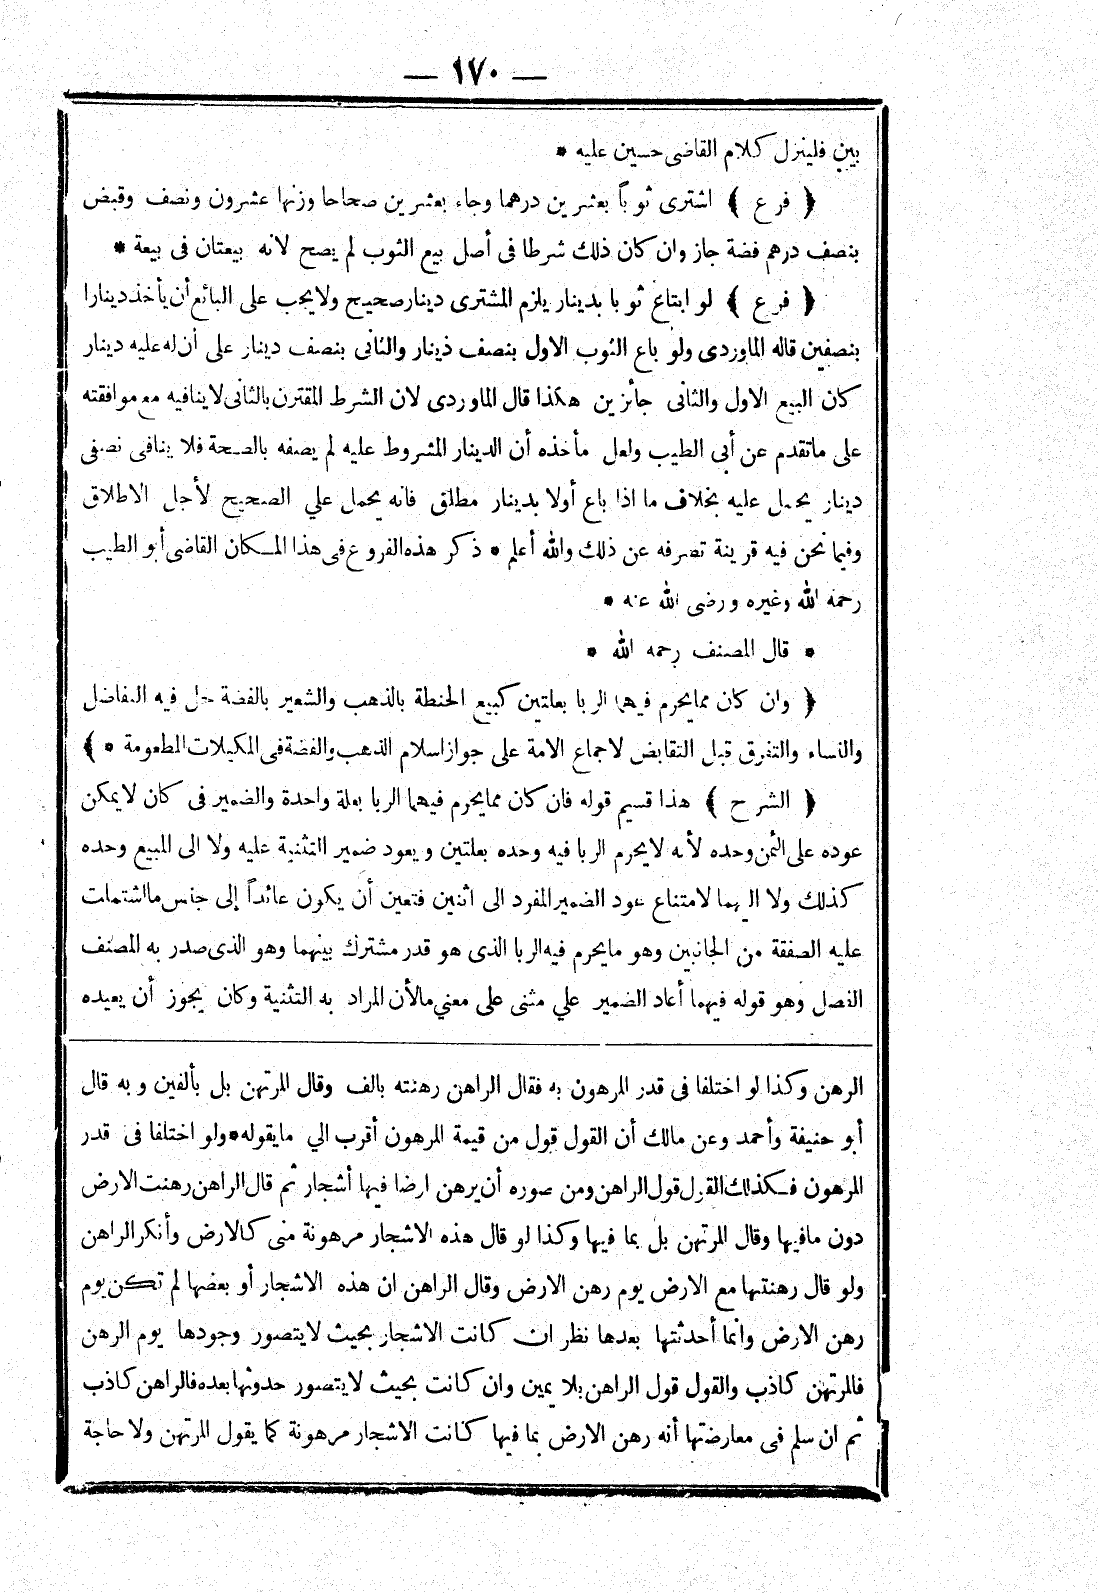 — ١٧٠ —
بين فلينزل كلام القاضى حسين عليه *
﴿ فرع ﴾ اشترى ثوباً بعشرين درهما وجاء بعشرين صحاحا وزنها عشرون ونصف وقبض
بنصف درهم فضة جاز وان كان ذلك شرطا فى أصل بيع الثوب لم يصح لانه بيعتان فى بيعة *
﴿ فرع ﴾ لو ابتاع ثوبا بدينار يلزم المشترى دينار صحيح ولا يجب على البائع أن يأخذ دينارا
بنصفين قاله الماوردى ولو باع الثوب الاول بنصف دينار والثانى بنصف دينار على أن له عليه دينار
كان البيع الاول والثانى جائزين هكذا قال الماوردى لان الشرط المقترن بالثانى لا ينافيه مع موافقته
على ماتقدم عن أبى الطيب ولعل مأخذه أن الدينار المشروط عليه لم يصفه بالصحة فلا ينافى نصفى
دينار يحمل عليه بخلاف ما اذا باع أولا بدينار مطلق فانه يحمل علي الصحيح لأجل الاطلاق
وفيما نحن فيه قرينة تصرفه عن ذلك والله أعلم * ذكر هذه الفروع فى هذا المكان القاضى أبو الطيب
رحمه الله وغيره ورضى الله عنه *
* قال المصنف رحمه الله *
﴿ وان كان ممايحرم فيهما الربا بعلتين كبيع الحنطة بالذهب والشعير بالفضة حل فيه التفاضل
والنساء والتفرق قبل التقابض لاجماع الامة على جواز اسلام الذهب والفضة فى المكيلات المطعومة * ﴾
﴿ الشرح ﴾ هذا قسيم قوله فان كان ممايحرم فيهما الربا بعلة واحدة والضمير فى كان لايمكن
عوده على الثمن وحده لأنه لا يحرم الربا فيه وحده بعلتين ويعود ضمير التثنية عليه ولا الى المبيع وحده
كذلك ولا اليهما لامتناع عود الضمير المفرد الى اثنين فتعين أن يكون عائداً إلى جنس مااشتملت
عليه الصفقة من الجانبين وهو مايحرم فيه الربا الذى هو قدر مشترك بينهما وهو الذى صدر به المصنف
الفصل وهو قوله فيهما أعاد الضمير علي مثنى على معني مالأن المراد به التثنية وكان يجوز أن يعيده
الرهن وكذا لو اختلفا فى قدر المرهون به فقال الراهن رهنته بالف وقال المرتهن بل بألفين وبه قال
أبو حنيفة وأحمد وعن مالك أن القول قول من قيمة المرهون أقرب الي مايقوله * ولو اختلفا فى قدر
المرهون فكذلك القول قول الراهن ومن صوره أن يرهن ارضا فيها أشجار ثم قال الراهن رهنت الارض
دون مافيها وقال المرتهن بل بما فيها وكذا لو قال هذه الاشجار مرهونة منى كالارض وأنكر الراهن
ولو قال رهنتها مع الارض يوم رهن الارض وقال الراهن ان هذه الاشجار أو بعضها لم تكن يوم
رهن الارض وانما أحدثتها بعدها نظر ان كانت الاشجار بحيث لايتصور وجودها يوم الرهن
فالمرتهن كاذب والقول قول الراهن بلا يمين وان كانت بحيث لايتصور حدوثها بعده فالراهن كاذب
ثم ان سلم فى معارضتها أنه رهن الارض بما فيها كانت الاشجار مرهونة كما يقول المرتهن ولا حاجة